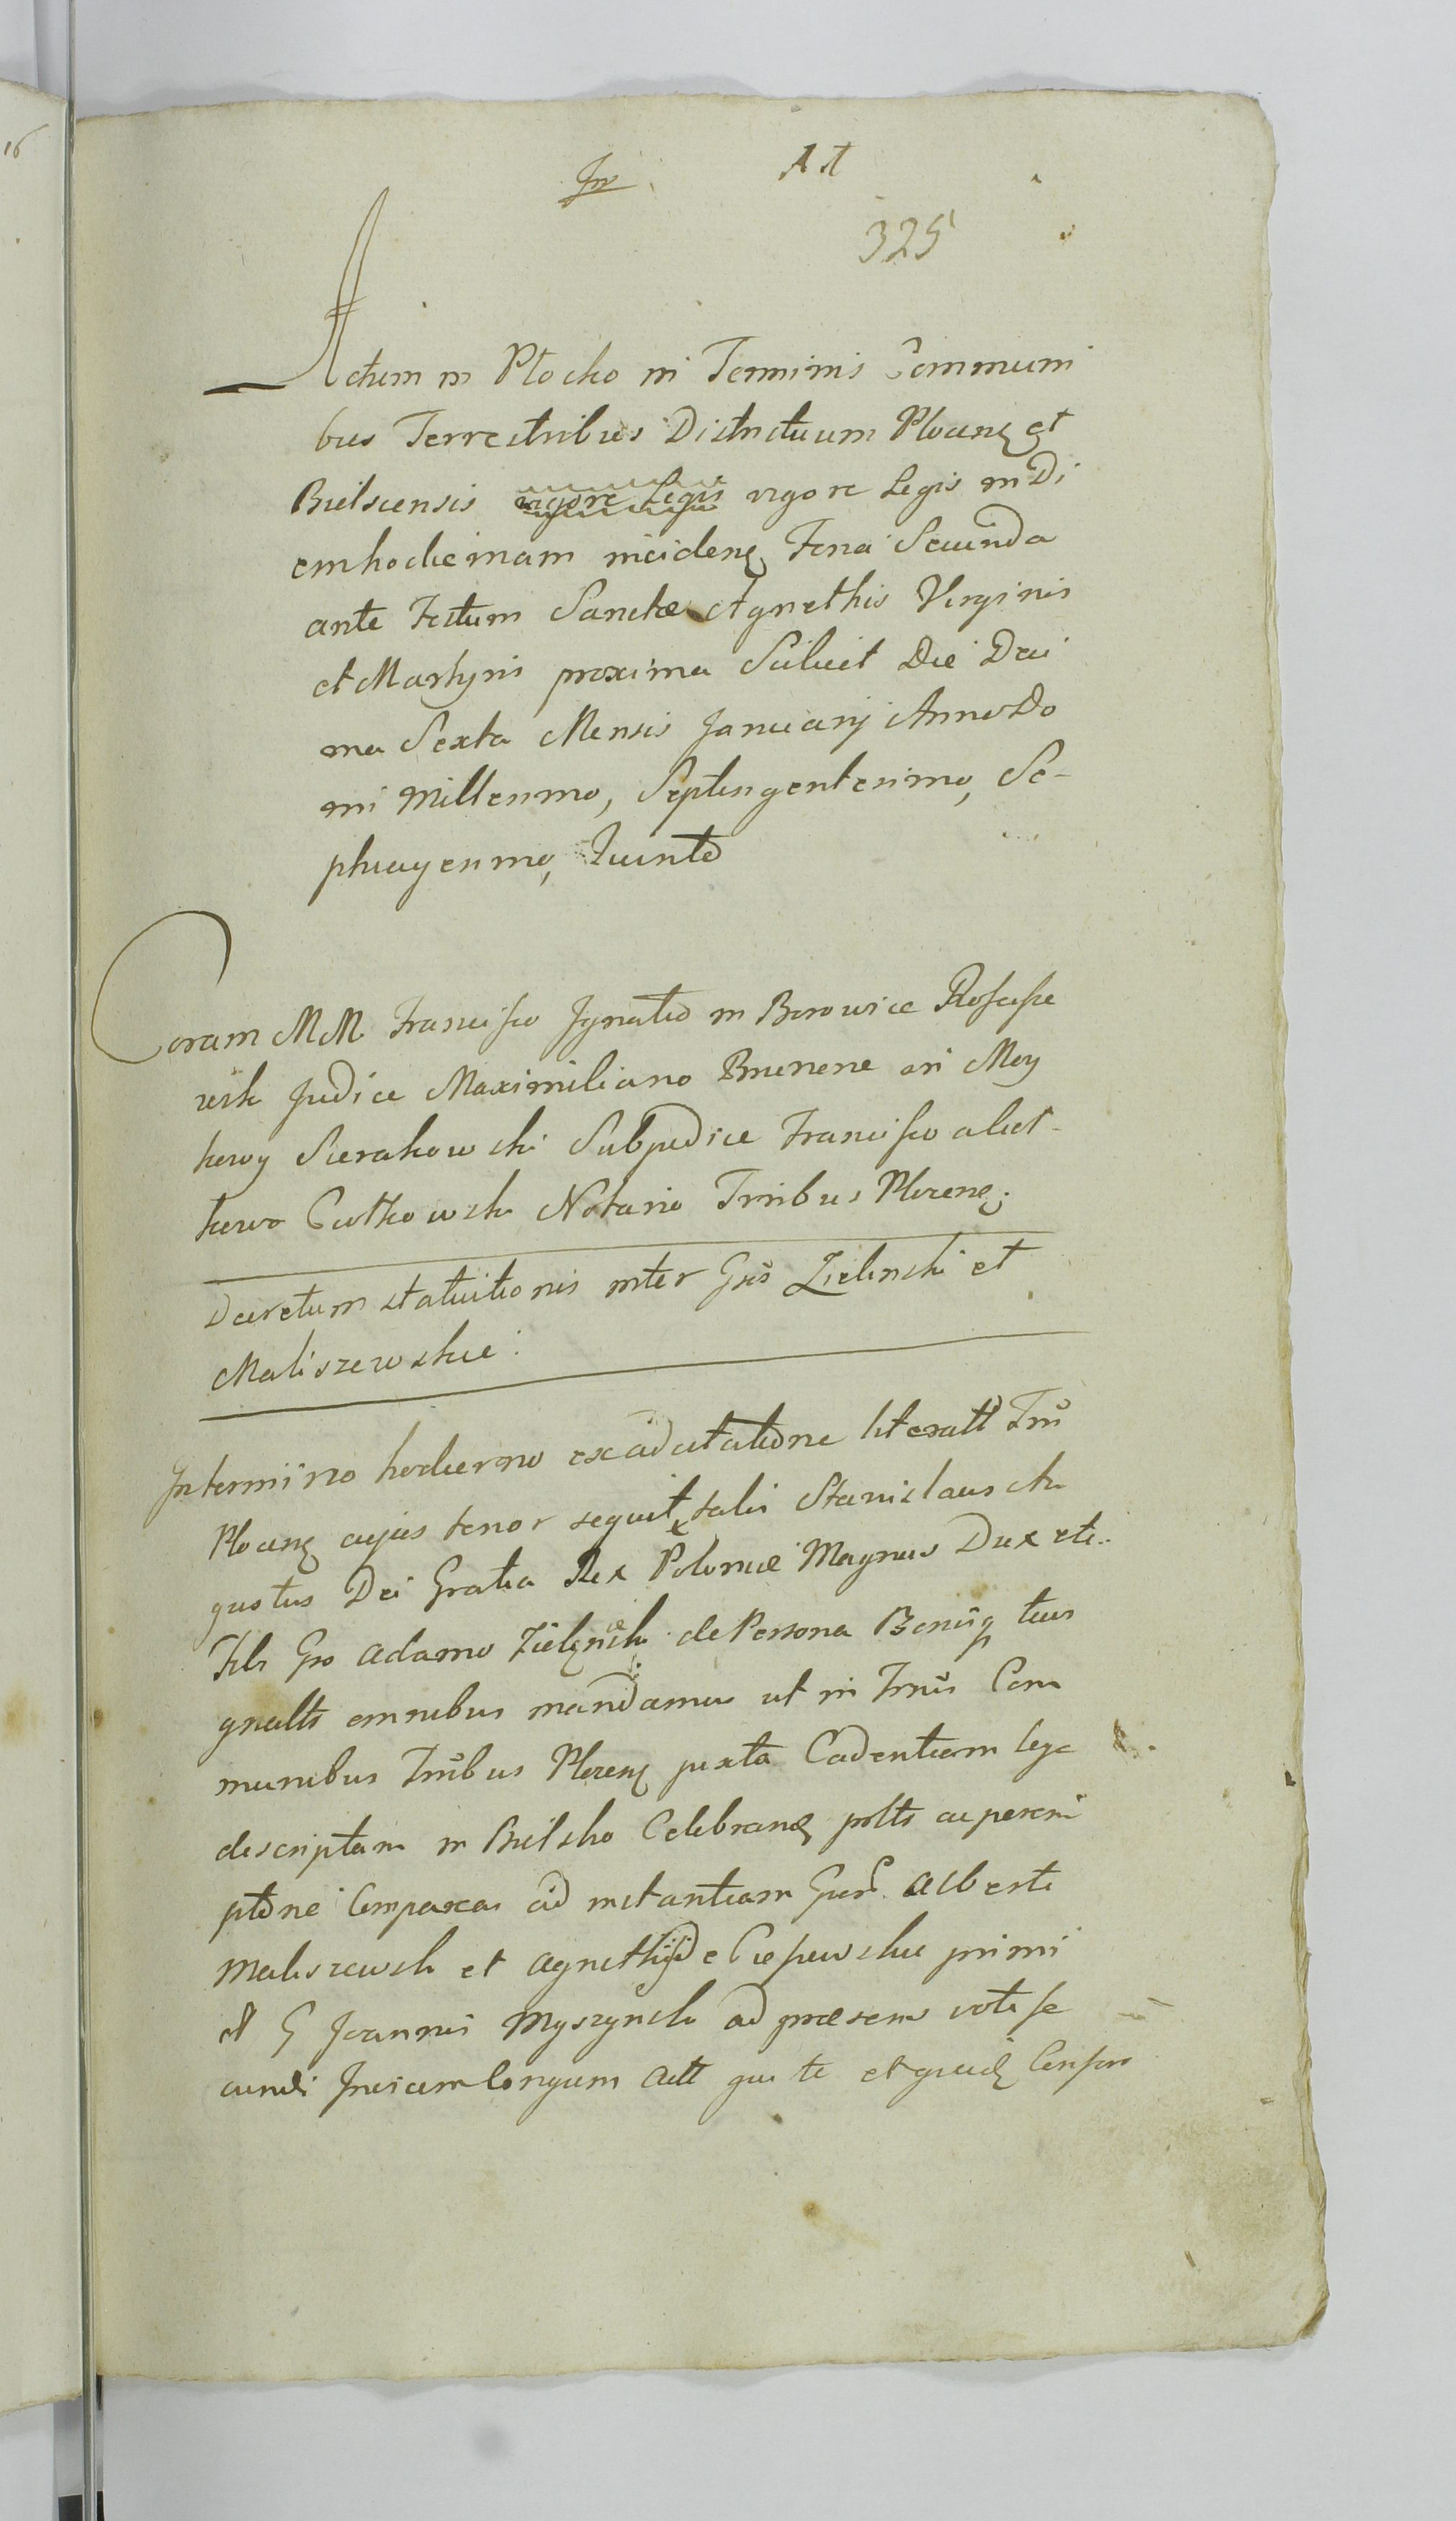 At
325
Actum in Plocko in Terminis Communi
bus Terrestribus Districtuum Plocenς et
Bielscensis vigore Legis vigore Legis in Di
em hodiernam incidenς Feria Secunda
ante Festum Sanctæ Agnethis Virginis
et Martyris proxima Scilicet Die Deci
ma Sexta Mensis Januarij Anno Do
mi Millesimo, Septingentesimo, Se-
ptuagesimo, Quinto
Coram MM Francisco Ignatio in Borowice
Judice Maximiliano in
Sierakowski Subjudice Francisco
Notario Trribus Plocenς.
Decretum statuitionis inter Gsos Zielinski et
Maliszewskie:
In termino hodierno ex ad citatione literali Trri
Plocenς cujus tenor sequitς talis Stanislaus Au
gustus Dei Gratia Rex Poloniæ Magnus Dux etc.
Tibi Gso Adamo Zielinski de Persona Bonisq tuis
gnalts omnibus mandamus ut in Trnis Com
munibus Trribus Plocenς juxta Cadentiam lege
descriptam in Bielsko Celebranς
ptorie Compareas ad instantiam Alberti
Maliszewski et Agnethis de primi
et G Joannis Myszynski ad præsens voti se
cundi Invicem Conjugum Actt qui te et